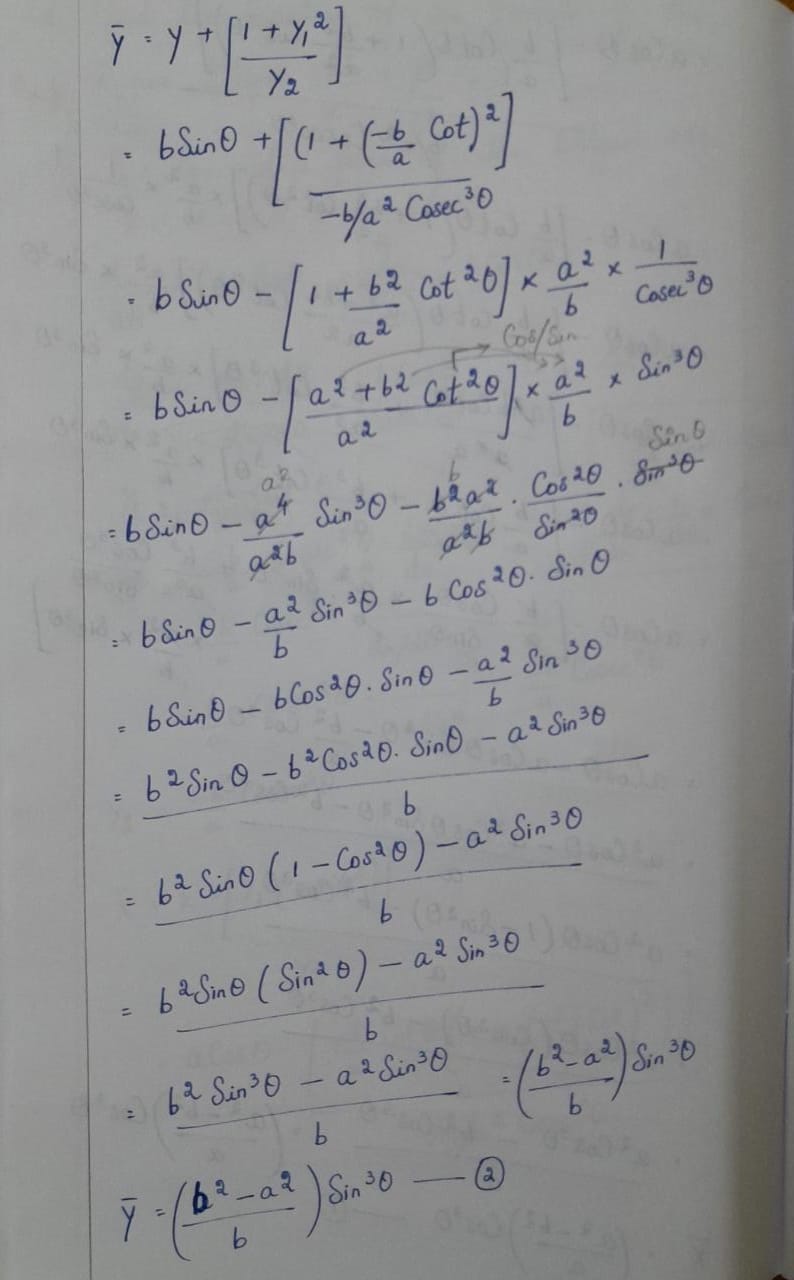 ȳ = y + [(1 + y₁²)/y₂]
= bSinθ + [(1 + (-b/a Cot)²]/-b/a² Cosec³θ
= bSinθ - [1 + b²/a² Cot²θ] × a²/b × 1/Cosec³θ
Cos/Sin
= bSinθ - [(a² + b² Cot²θ)/a²] × a²/b × Sin³θ
a² b Sinθ
= bSinθ - a⁴/a²b Sin³θ - b²a²/a²b . Cos²θ/Sin²θ . Sin³θ
= bSinθ - a²/b Sin³θ - b Cos²θ. Sinθ
= bSinθ - bCos²θ. Sinθ - a²/b Sin³θ
= (b²Sinθ - b²Cos²θ. Sinθ - a² Sin³θ)/b
= (b² Sinθ (1 - Cos²θ) - a² Sin³θ)/b
= (b²Sinθ (Sin²θ) - a² Sin³θ)/b
= (b² Sin³θ - a² Sin³θ)/b = ((b² - a²)/b) Sin³θ
ȳ = ((b² - a²)/b) Sin³θ — ②